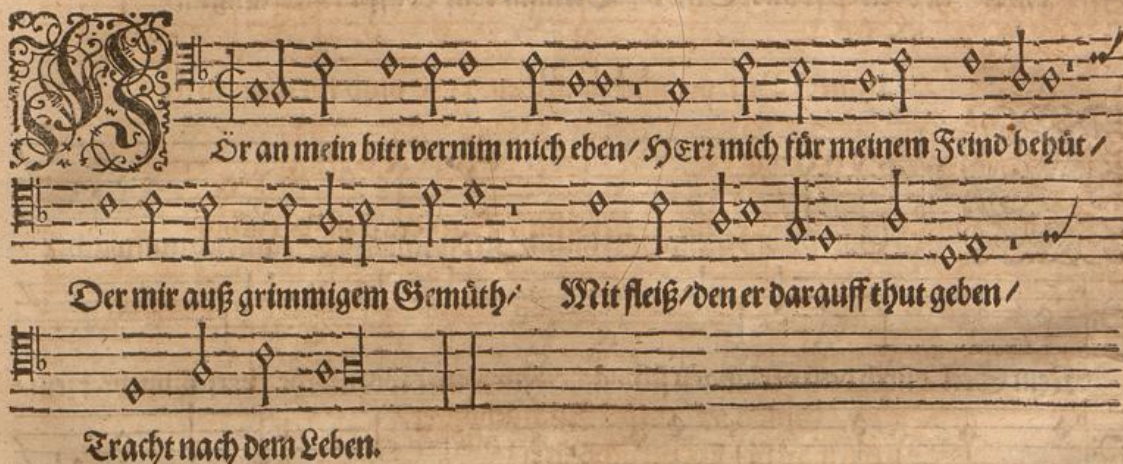 HÖr an mein bitt vernim mich eben / HErr mich für meinem Feind behüt /
Der mir auß grimmigem Gemüth / Mit fleiß / den er darauff thut geben /
Tracht nach dem Leben.